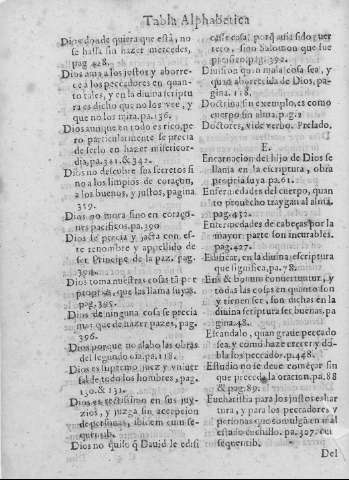 Tabla Alphabetica
Dios donde quiera que està, no
se halla sin hazer mercedes,
pag 428.
Dios ama a los justos y aborre-
ce a los peccadores en quan-
to tales, y en la diuina scriptu
ra es dicho que no los vee, y
que no los mira. pa.136.
Dios aunque en todo es rico, pe
ro particularmente se precia
de serlo en hazer misericor-
dia, pa.341.& 342.
Dios no descubre sus secretos si
no a los limpios de coraçon,
a los buenos, y justos, pagina
359.
Dios no mora sino en coraço-
nes pacificos. pa.390
Dios se precia y jacta con es-
te renombre y appellido de
ser Principe de la paz. pag.
Dios toma nuestras cosas tã por
proprias, que las llama suyas.
pag.395.
Dios de ninguna cosa se precia
mas que de hazer pazes, pag.
396.
Dios porque no alabo las obras
del segundo dia. pa.118.
Dios es supremo juez y vniuer
sal de todo los hombres, pag.
130.& 131.
Dios es rectissimo en sus juy-
zios, y juzga sin accepcion
de personas, ibidem cum se-
quentib.
Dios no quiso q̃ Dauid le edifi
casse casa, porq̃ auia sido guer
rero, sino Salomon que fue
pacifico, pag.392.
Diuision quan mala cosa sea, y
quan aborrecida de Dios, pa-
gina.118.
Doctrina sin exemplo, es como
cuerpo sin alma. pag.2
Doctores, vide verbo. Prelado.
E.
Encarnacion del hijo de Dios se
llama en la escriptura, obra
propria suya pa.61.
Enfermedades del cuerpo, quan
to prouecho traygan al alma.
pag.432.
Enfermedades de cabeças por la
mayor parte son incurables.
pag.427.
Edificar, en la diuina escriptura
que significa, pa.78.
Ens & bonum conuertuntur, y
todas las cosas en quanto son
y tienen ser, son dichas en la
diuina scriptura ser buenas. pa
gina.48.
Escandalo, quan graue peccado
sea, y como haze crecer y do-
bla los peccados. p.448.
Estudio no se deue començar sin
que preceda la oracion. pa.88
& pag.89.
Eucharistia para los justos es har
tura, y para los peccadores, y
personas que comulgã en mal
estado cuchillo. pa.327. cũ
sequentib.
Del